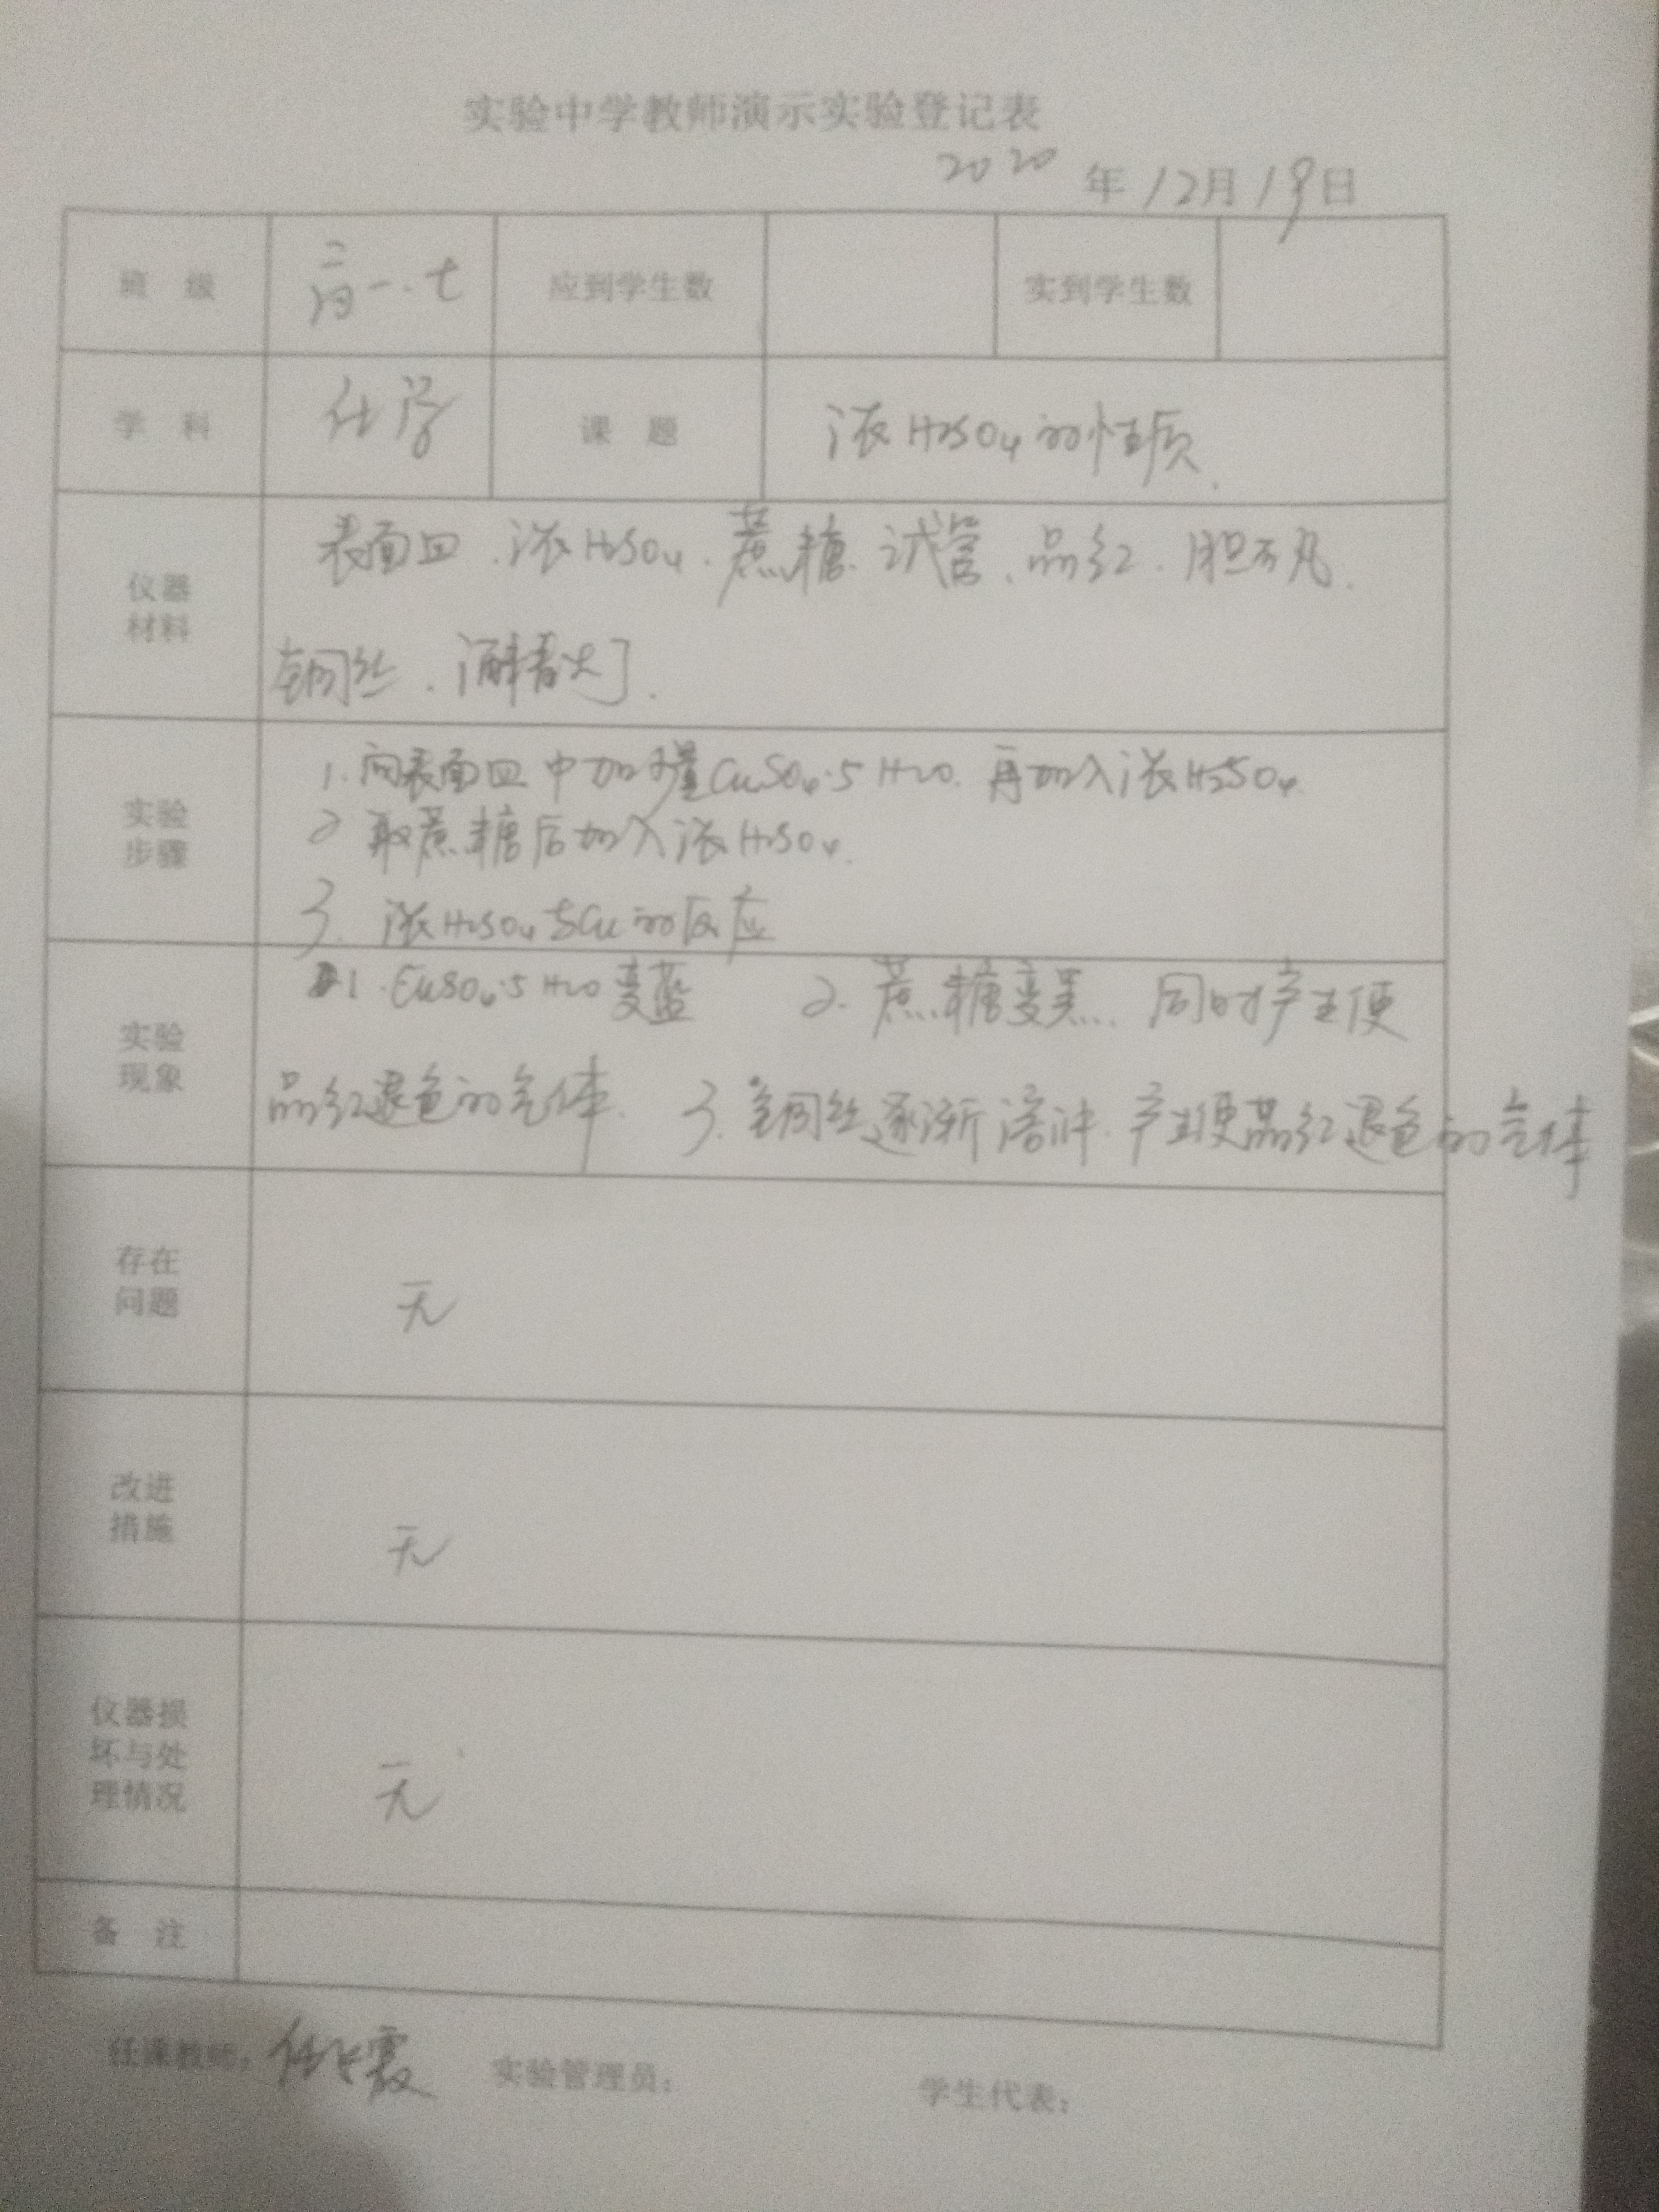 实验中学教师演示实验登记表
2020年12月19日
班 级 高一.七 应到学生数 实到学生数
学 科 化学 课 题 浓H2SO4的性质.
仪器
材料
表面皿.浓H2SO4.蔗糖.试管.品红.胆
铜丝.酒精灯.
实验
步骤
1.向表面皿中加 量CuSO4·5H2O.再加入浓H2SO4.
2 取蔗糖后加入浓H2SO4.
3. 浓H2SO4与Cu的反应
实验
现象
1.CuSO4·5H2O变蓝 2.蔗糖变黑.同时产生使
品红退色的气体. 3.铜丝逐渐溶解.产生使品红退色的气体
存在
问题
无
改进
措施
无
仪器损
坏与处
理情况
无
备 注
任课教师: 霞 实验管理员: 学生代表: